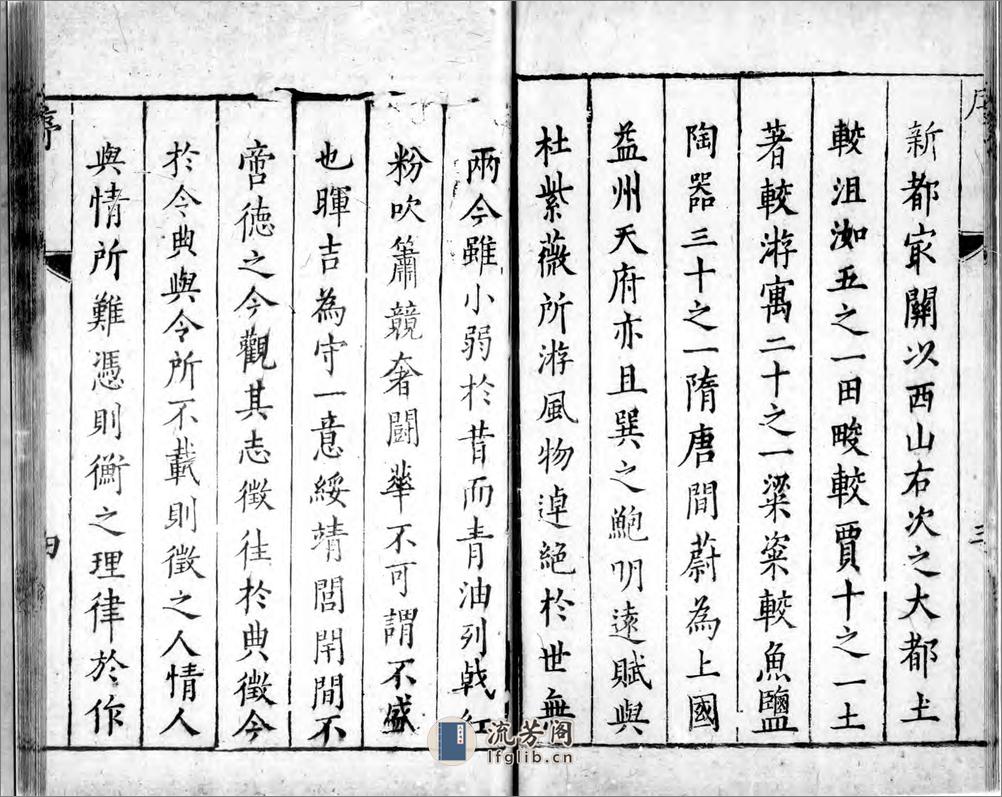 序
三
新都家關以西山右次之大都土
較沮洳五之一田畯較賈十之一土
著較游寓二十之一粱粢較魚鹽
陶器三十之一隋唐間蔚為上國
益州天府亦且巽之鮑明遠賦與
杜紫薇所游風物逴絕於世無
兩今雖小弱於昔而青油列戟紅
粉吹簫競奢鬪華不可謂不盛
也暉吉為守一意綏靖閭閈間不
啻德之今觀其志徵往於典徵今
於今典與令所不載則徵之人情人
與情所難憑則衡之理律於作
序
四
流芳阁
lfglib.cn